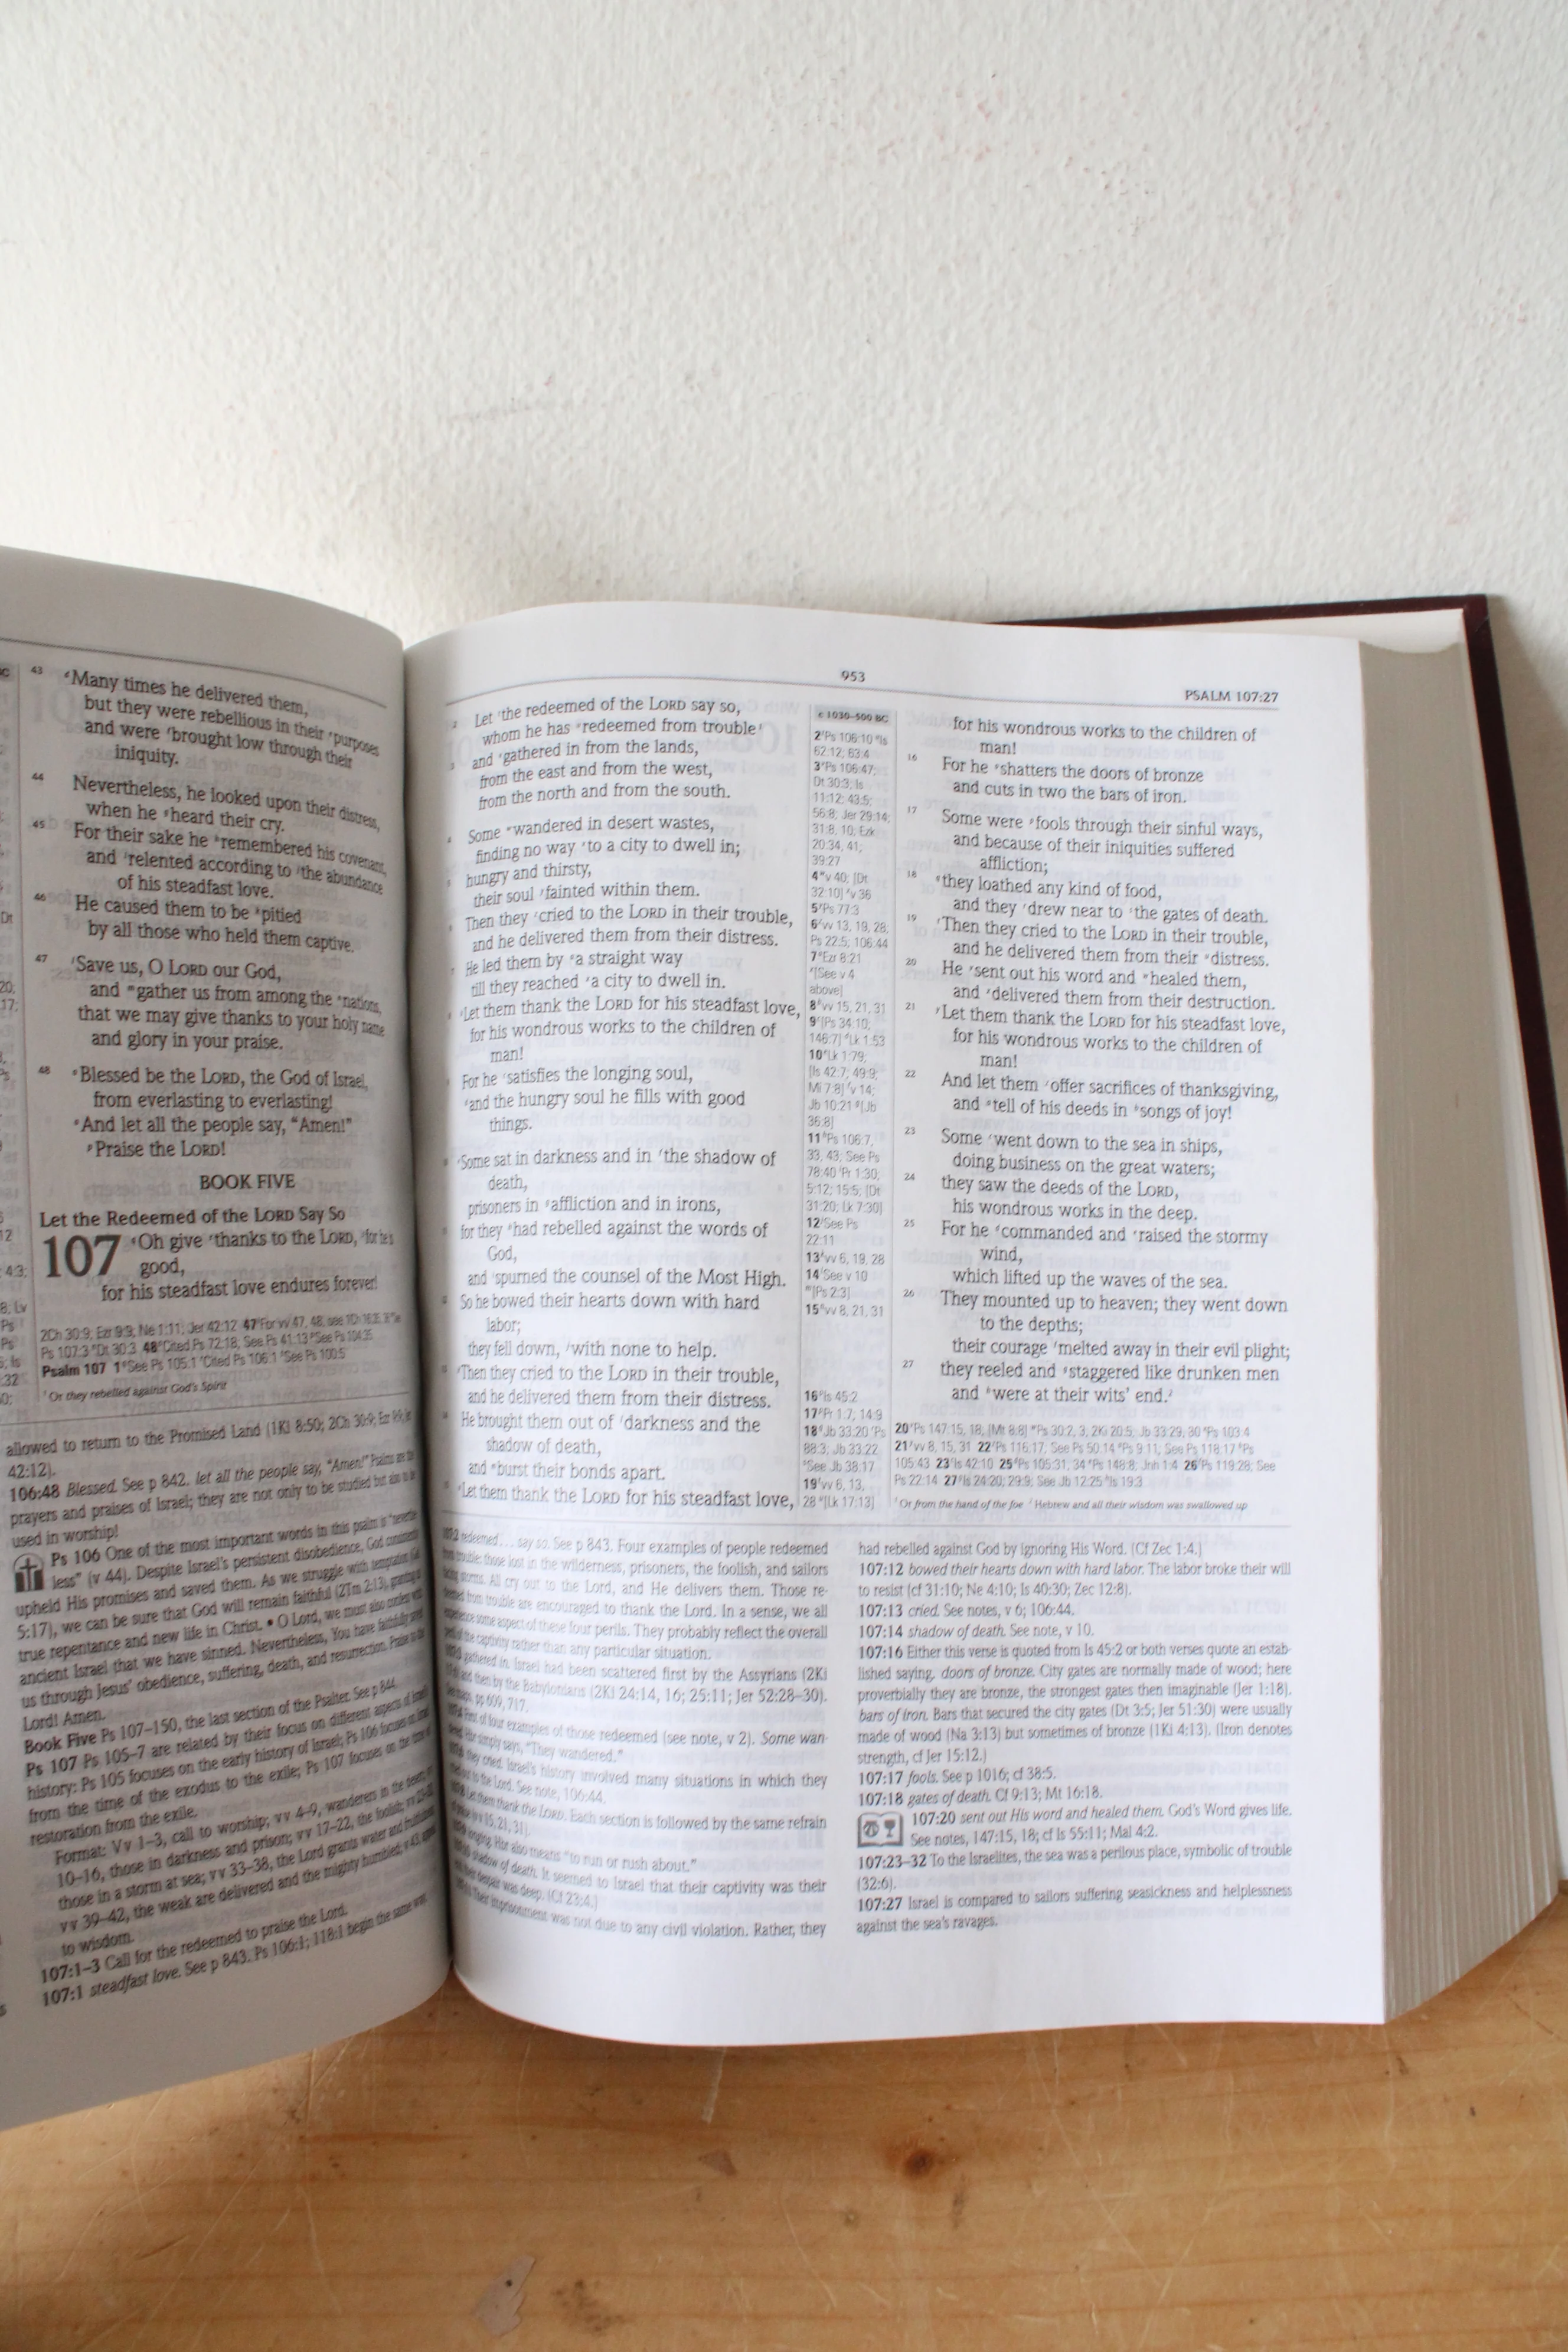 43 Many times he delivered them,
but they were rebellious in their purposes
and were brought low through their
iniquity.
44 Nevertheless, he looked upon their distress,
when he heard their cry.
45 For their sake he remembered his covenant,
and relented according to the abundance
of his steadfast love.
46 He caused them to be pitied
by all those who held them captive.
47 Save us, O LORD our God,
and gather us from among the nations,
that we may give thanks to your holy name
and glory in your praise.
48 Blessed be the LORD, the God of Israel,
from everlasting to everlasting!
And let all the people say, “Amen!”
Praise the LORD!
BOOK FIVE
Let the Redeemed of the LORD Say So
107 Oh give thanks to the LORD, for he is
good,
for his steadfast love endures forever!
2Ch 30:9; Ezr 9:9; Ne 1:11; Jer 42:12 47 For vv 47, 48, see
Ps 107:3 Dt 30:3 48 Cited Ps 72:18; See Ps 41:13 See Ps 104:35
Psalm 107 1 See Ps 105:1 Cited Ps 106:1 See Ps 100:5
Or they rebelled against God's Spirit
allowed to return to the Promised Land (1Ki 8:50; 2Ch 30:9;
42:12).
106:48 Blessed. See p 842. let all the people say, “Amen!” Psalms are the
prayers and praises of Israel; they are not only to be studied but also to be
used in worship!
Ps 106 One of the most important words in this psalm is “neverthe-
less” (v 44). Despite Israel's persistent disobedience, God consistently
upheld His promises and saved them. As we struggle with temptation
5:17), we can be sure that God will remain faithful (2Tm 2:13), granting us
true repentance and new life in Christ. • O Lord, we must also confess with
ancient Israel that we have sinned. Nevertheless, You have faithfully saved
us through Jesus' obedience, suffering, death, and resurrection. Praise to the
Lord! Amen.
Book Five Ps 107–150, the last section of the Psalter. See p 844.
Ps 107 Ps 105–7 are related by their focus on different aspects of Israel's
history: Ps 105 focuses on the early history of Israel; Ps 106 focuses on Israel
from the time of the exodus to the exile; Ps 107 focuses on the time of
restoration from the exile.
Format: Vv 1–3, call to worship; vv 4–9, wanderers in the desert; vv
10–16, those in darkness and prison; vv 17–22, the foolish; vv 23–32
those in a storm at sea; vv 33–38, the Lord grants water and fruitfulness;
vv 39–42, the weak are delivered and the mighty humbled; v 43, appeal
to wisdom.
107:1–3 Call for the redeemed to praise the Lord.
107:1 steadfast love. See p 843. Ps 106:1; 118:1 begin the same way.
953
PSALM 107:27
2 Let the redeemed of the LORD say so,
whom he has redeemed from trouble
3 and gathered in from the lands,
from the east and from the west,
from the north and from the south.
4 Some wandered in desert wastes,
finding no way to a city to dwell in;
5 hungry and thirsty,
their soul fainted within them.
6 Then they cried to the LORD in their trouble,
and he delivered them from their distress.
7 He led them by a straight way
till they reached a city to dwell in.
8 Let them thank the LORD for his steadfast love,
for his wondrous works to the children of
man!
9 For he satisfies the longing soul,
and the hungry soul he fills with good
things.
10 Some sat in darkness and in the shadow of
death,
prisoners in affliction and in irons,
11 for they had rebelled against the words of
God,
and spurned the counsel of the Most High.
12 So he bowed their hearts down with hard
labor;
they fell down, with none to help.
13 Then they cried to the LORD in their trouble,
and he delivered them from their distress.
14 He brought them out of darkness and the
shadow of death,
and burst their bonds apart.
15 Let them thank the LORD for his steadfast love,
c 1030–500 BC
2 Ps 106:10 Is
62:12; 63:4
3 Ps 106:47;
Dt 30:3; Is
11:12; 43:5;
56:8; Jer 29:14;
31:8, 10; Ezk
20:34, 41;
39:27
4 v 40; [Dt
32:10] v 36
5 Ps 77:3
6 vv 13, 19, 28;
Ps 22:5; 106:44
7 Ezr 8:21
[See v 4
above]
8 vv 15, 21, 31
9 [Ps 34:10;
146:7] Lk 1:53
10 Lk 1:79;
[Is 42:7; 49:9;
Mi 7:8] v 14;
Jb 10:21 [Jb
36:8]
11 Ps 106:7,
33, 43; See Ps
78:40 Pr 1:30;
5:12; 15:5; [Dt
31:20; Lk 7:30]
12 See Ps
22:11
13 vv 6, 19, 28
14 See v 10
[Ps 2:3]
15 vv 8, 21, 31
16 Is 45:2
17 Pr 1:7; 14:9
18 Jb 33:20 Ps
88:3; Jb 33:22
See Jb 38:17
19 vv 6, 13,
28 [Lk 17:13]
for his wondrous works to the children of
man!
16 For he shatters the doors of bronze
and cuts in two the bars of iron.
17 Some were fools through their sinful ways,
and because of their iniquities suffered
affliction;
18 they loathed any kind of food,
and they drew near to the gates of death.
19 Then they cried to the LORD in their trouble,
and he delivered them from their distress.
20 He sent out his word and healed them,
and delivered them from their destruction.
21 Let them thank the LORD for his steadfast love,
for his wondrous works to the children of
man!
22 And let them offer sacrifices of thanksgiving,
and tell of his deeds in songs of joy!
23 Some went down to the sea in ships,
doing business on the great waters;
24 they saw the deeds of the LORD,
his wondrous works in the deep.
25 For he commanded and raised the stormy
wind,
which lifted up the waves of the sea.
26 They mounted up to heaven; they went down
to the depths;
their courage melted away in their evil plight;
27 they reeled and staggered like drunken men
and were at their wits' end.
20 Ps 147:15, 18; [Mt 8:8] Ps 30:2, 3; 2Ki 20:5; Jb 33:29, 30 Ps 103:4
21 vv 8, 15, 31 22 Ps 116:17; See Ps 50:14 Ps 9:11; See Ps 118:17 Ps
105:43 23 Is 42:10 25 Ps 105:31, 34 Ps 148:8; Jnh 1:4 26 Ps 119:28; See
Ps 22:14 27 Is 24:20; 29:9; See Jb 12:25 Is 19:3
Or from the hand of the foe Hebrew and all their wisdom was swallowed up
107:2 redeemed . . . say so. See p 843. Four examples of people redeemed
from trouble: those lost in the wilderness, prisoners, the foolish, and sailors
facing storms. All cry out to the Lord, and He delivers them. Those re-
deemed from trouble are encouraged to thank the Lord. In a sense, we all
experience some aspect of these four perils. They probably reflect the overall
peril of the captivity rather than any particular situation.
gathered in. Israel had been scattered first by the Assyrians (2Ki
and then by the Babylonians (2Ki 24:14, 16; 25:11; Jer 52:28–30).
See maps, pp 609, 717.
First of four examples of those redeemed (see note, v 2). Some wan-
dered. Hbr simply says, “They wandered.”
they cried. Israel's history involved many situations in which they
to the Lord. See note, 106:44.
Let them thank the LORD. Each section is followed by the same refrain
(vv 15, 21, 31).
longing. Hbr also means “to run or rush about.”
shadow of death. It seemed to Israel that their captivity was their
despair was deep. (Cf 23:4.)
Their imprisonment was not due to any civil violation. Rather, they
had rebelled against God by ignoring His Word. (Cf Zec 1:4.)
107:12 bowed their hearts down with hard labor. The labor broke their will
to resist (cf 31:10; Ne 4:10; Is 40:30; Zec 12:8).
107:13 cried. See notes, v 6; 106:44.
107:14 shadow of death. See note, v 10.
107:16 Either this verse is quoted from Is 45:2 or both verses quote an estab-
lished saying. doors of bronze. City gates are normally made of wood; here
proverbially they are bronze, the strongest gates then imaginable (Jer 1:18).
bars of iron. Bars that secured the city gates (Dt 3:5; Jer 51:30) were usually
made of wood (Na 3:13) but sometimes of bronze (1Ki 4:13). (Iron denotes
strength, cf Jer 15:12.)
107:17 fools. See p 1016; cf 38:5.
107:18 gates of death. Cf 9:13; Mt 16:18.
107:20 sent out His word and healed them. God's Word gives life.
See notes, 147:15, 18; cf Is 55:11; Mal 4:2.
107:23–32 To the Israelites, the sea was a perilous place, symbolic of trouble
(32:6).
107:27 Israel is compared to sailors suffering seasickness and helplessness
against the sea's ravages.